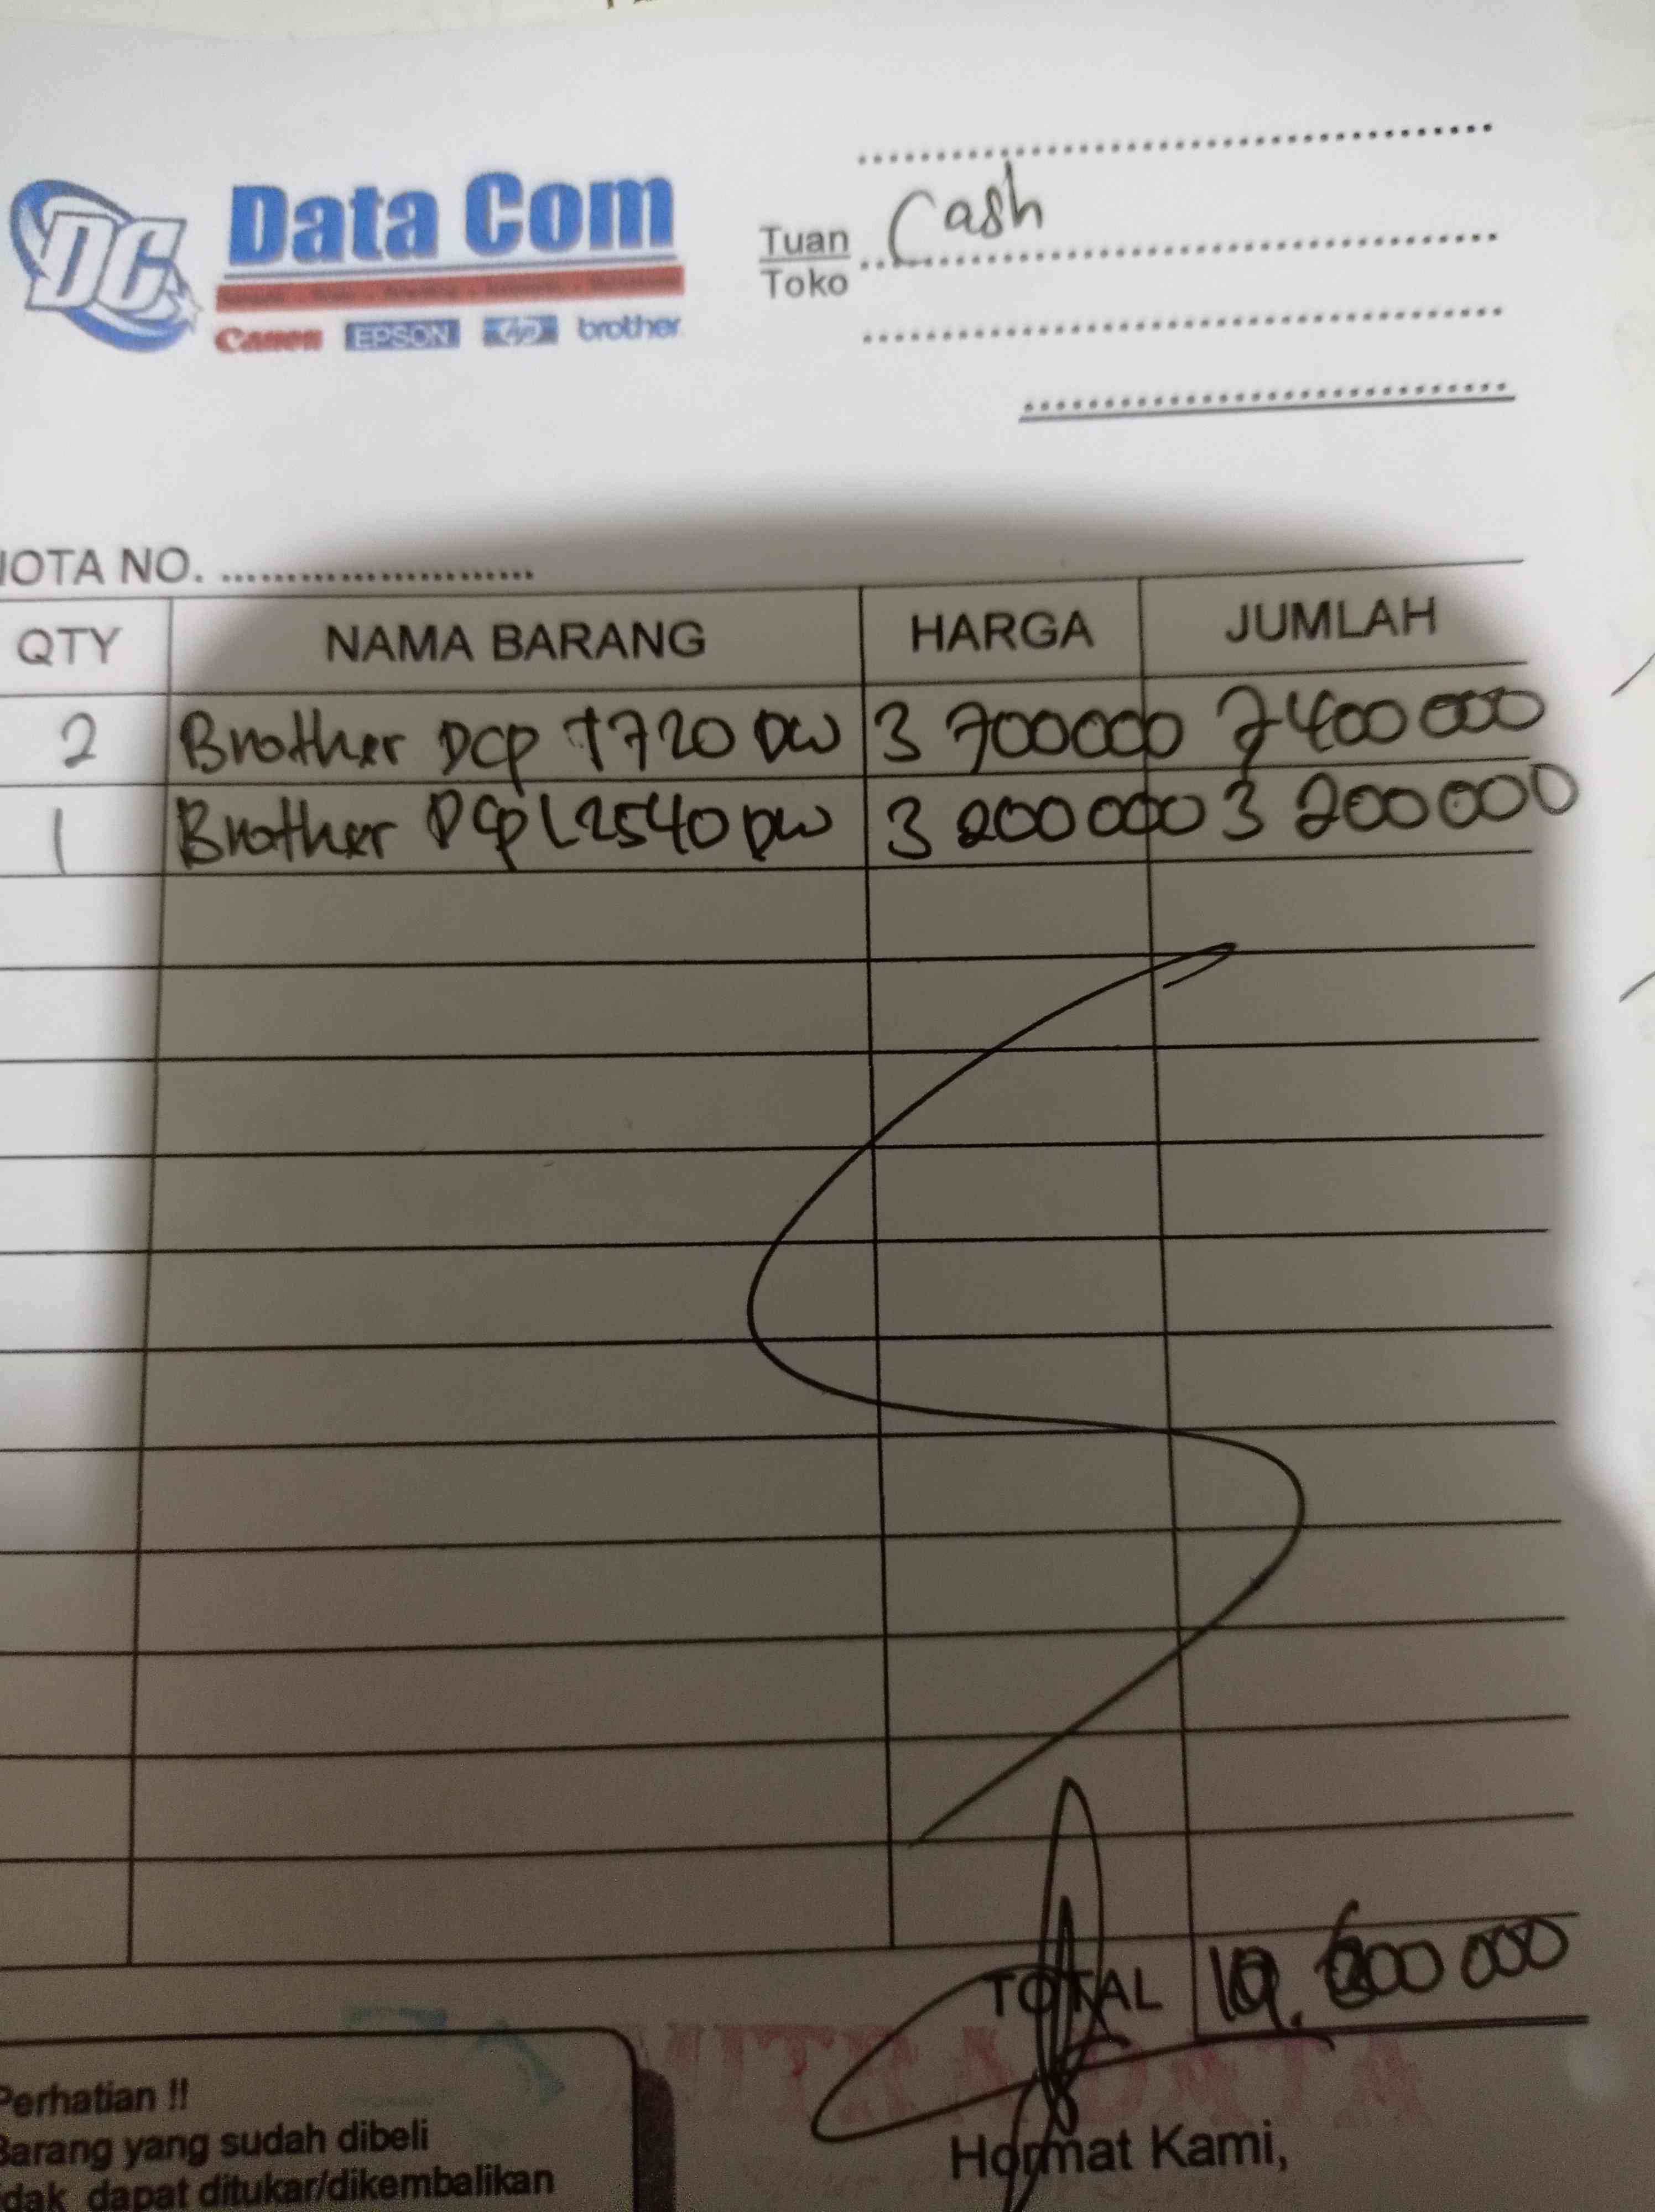 DC
Data Com
Canon EPSON hp brother
Tuan Cash
Toko
NOTA NO.
QTY NAMA BARANG HARGA JUMLAH
2 Brother Dcp T720 DW 3 700000 7400 000
1 Brother Dcp L2540 DW 3 200 000 3 200000
TOTAL 10.600 000
Perhatian !!
Barang yang sudah dibeli
tidak dapat ditukar/dikembalikan
Hormat Kami,